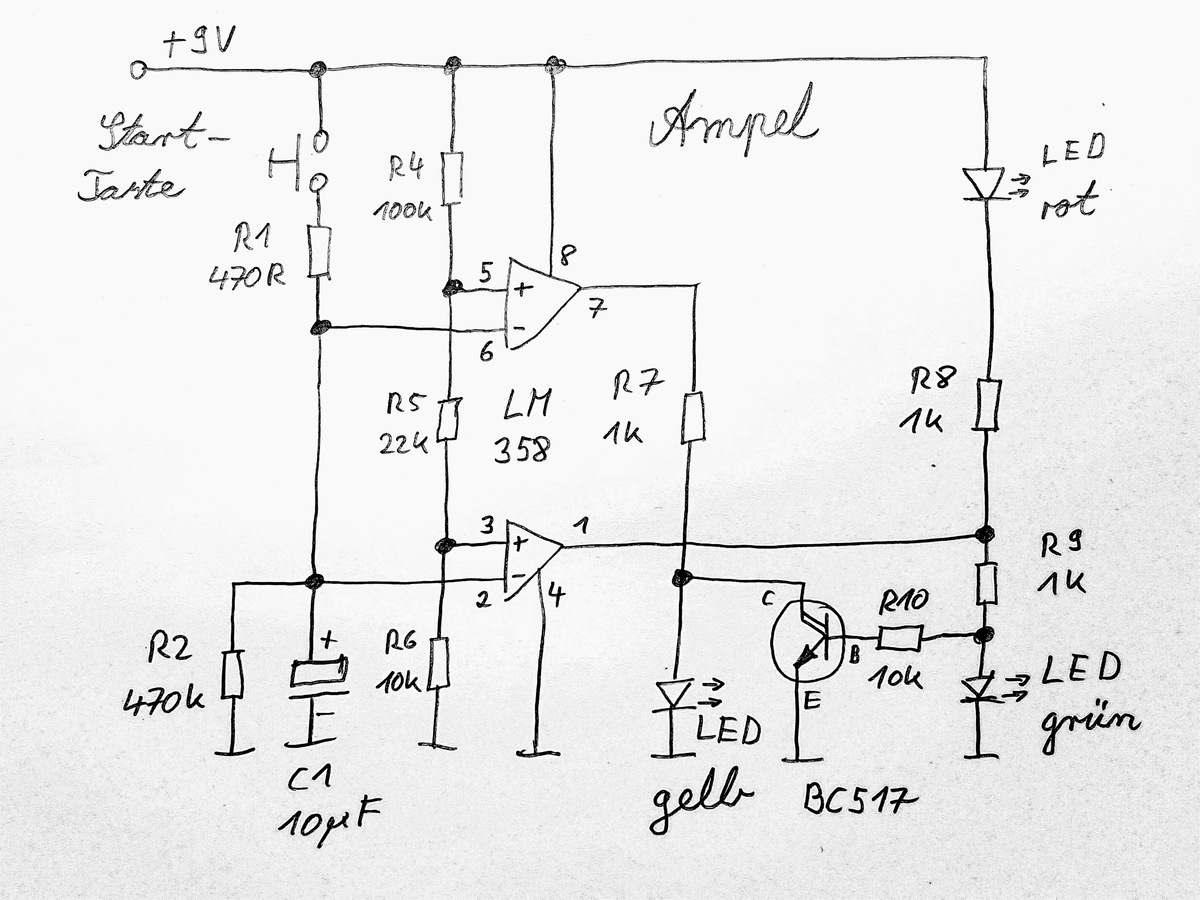 +9V
Start-
Taste
Ampel
LED
rot
R1
470R
R4
100k
5
+
8
7
-
6
R5
22k
LM
358
R7
1k
R8
1k
3
+
1
-
2
4
R9
1k
R2
470k
+
-
C1
10µF
R6
10k
LED
gelb
C
B
E
BC517
R10
10k
LED
grün